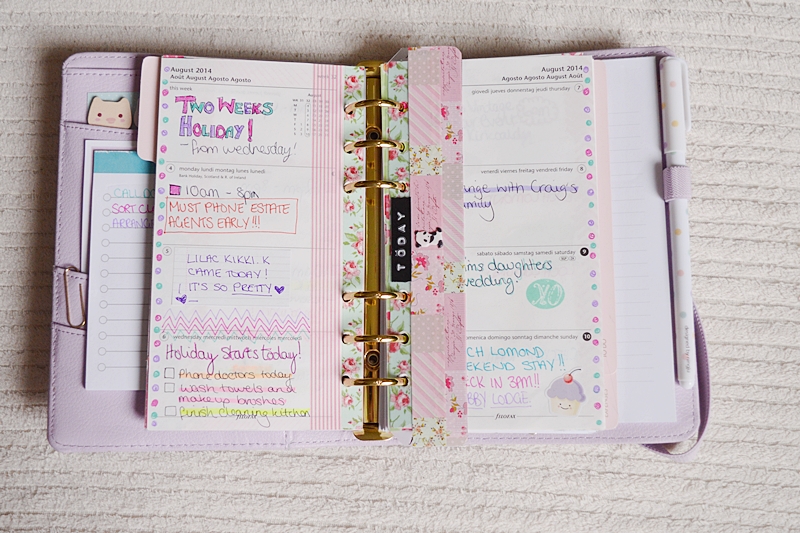 August 2014
Août August Agosto Agosto
this week
TWO WEEKS
HOLIDAY!
- from wednesday!
CALL DO
SORT CU
ARRANGE
4 monday lundi montag lunes lunedì
Bank holiday, Scotland & R. of Ireland
10am - 8pm
MUST PHONE ESTATE
AGENTS EARLY!!!
5
LILAC KIKKI.K
CAME TODAY!
IT'S SO PRETTY
6 wednesday mercredi mittwoch miércoles mercoledì
Holiday starts today!
Phone doctors today
Wash towels and
makeup brushes
Finish cleaning kitchen
filofax
TODAY
August 2014
Agosto Agosto August Août
giovedì jueves donnerstag jeudi thursday 7
venerdì viernes freitag vendredi friday 8
nge with Craig's
mily
sabato sábado samstag samedi saturday 9
ms daughters
wedding!
domenica domingo sonntag dimanche sunday 10
CH LOMOND
EKEND STAY!!
CK IN 3PM!!
BBY LODGE
filofax